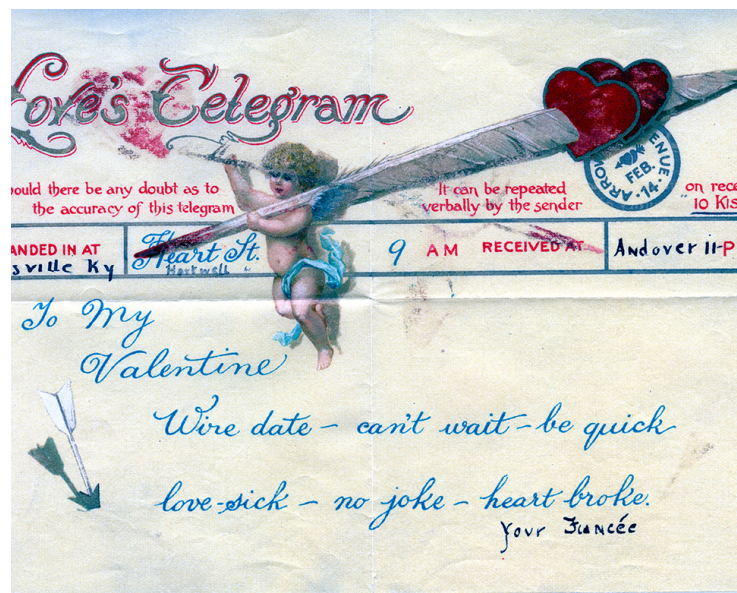 Love's Telegram
ould there be any doubt as to
the accuracy of this telegram
It can be repeated
verbally by the sender
ARROW
ENUE
FEB.
14
on rece
10 Kis
ANDED IN AT
sville Ky
Heart St.
Hartwell "
9 AM RECEIVED AT
Andover 11-P
To My
Valentine
Wire date – can't wait – be quick
love-sick – no joke – heart broke.
Your Fiancée